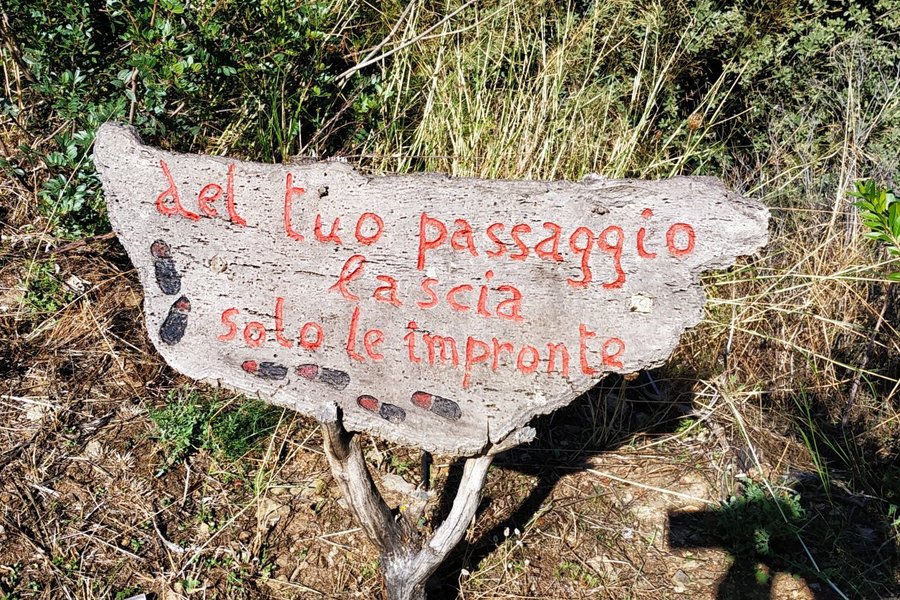 del tuo passaggio
lascia
solo le impronte